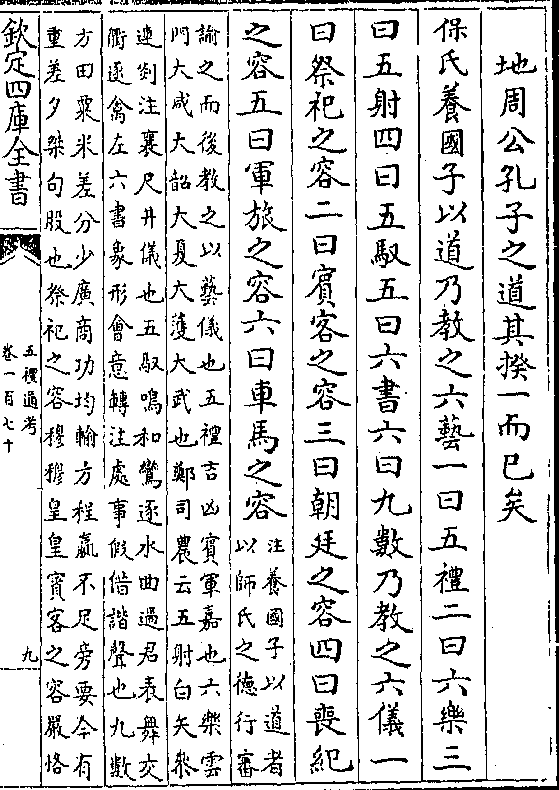 地周公孔子之道其揆一而已矣
保氏養國子以道乃教之六藝一曰五禮二曰六樂三
曰五射四曰五馭五曰六書六曰九數乃教之六儀一
曰祭祀之容二曰賓客之容三曰朝廷之容四曰喪紀
之容五曰軍旅之容六曰車馬之容
注養國子以道者
以師氏之德行審
諭之而後教之以藝儀也五禮吉凶賓軍嘉也六樂雲
門大咸大韶大夏大濩大武也鄭司農云五射白矢參
連剡注襄尺井儀也五馭鳴和鸞逐水曲過君表舞交
衢逐禽左六書象形會意轉注處事假借諧聲也九數
方田粟米差分少廣商功均輸方程贏不足旁要今有
重差夕桀句股也祭祀之容穆穆皇皇賓客之容嚴恪
欽定四庫全書
五禮通考
卷一百七十
九